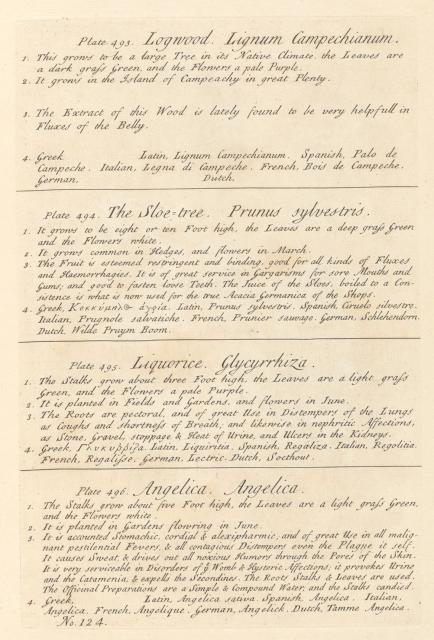 Plate 493. Logwood. Lignum Campechianum.
1. This grows to be a large Tree in its Native Climate, the Leaves are
a dark grass Green, and the Flowers a pale Purple.
2. It grows in the Island of Campeachy in great Plenty.
3. The Extract of this Wood is lately found to be very helpfull in
Fluxes of the Belly.
4. Greek Latin, Lignum Campechianum. Spanish, Palo de
Campeche. Italian, Legna di Campeche. French, Bois de Campeche.
German, Dutch,
Plate 494. The Sloe=tree. Prunus sylvestris.
1. It grows to be eight or ten Foot high, the Leaves are a deep grass Green
and the Flowers white.
2. It grows common in Hedges, and flowers in March.
3. The Fruit is esteemed restringent and binding, good for all kinds of Fluxes
and Haemorrhagies. It is of great service in Gargarisms for sore Mouths and
Gums; and good to fasten loose Teeth. The Juice of the Sloes, boiled to a Con-
sistence is what is now used for the true Acacia Germanica of the Shops.
4. Greek, ἀγρία. Latin, Prunus sylvestris. Spanish, Ciruelo silvestre.
Italian, Prugnole salvatiche. French, Prunier sauvage. German, Schlehendorn.
Dutch, Wilde Pruym Boom.
Plate 495. Liquorice. Glycyrrhiza.
1. The Stalks grow about three Foot high, the Leaves are a light grass
Green, and the Flowers a pale Purple.
2. It is planted in Fields and Gardens, and flowers in June.
3. The Roots are pectoral, and of great Use in Distempers of the Lungs
as Coughs and shortness of Breath; and likewise in nephritic Affections,
as Stone, Gravel, stoppage & Heat of Urine, and Ulcers in the Kidneys.
4. Greek, Latin, Liquiritia, Spanish, Regaliza. Italian, Regolitia.
French, Regalisse. German, Lectric. Dutch, Soethout.
Plate 496. Angelica. Angelica.
1. The Stalks grow about five Foot high, the Leaves are a light grass Green,
and the Flowers white.
2. It is planted in Gardens flowring in June.
3. It is accounted Stomachic, cordial & alexipharmic, and of great Use in all malig-
nant pestilential Fevers, & all contagious Distempers even the Plague it self.
It causes Sweat, & drives out all noxious Humors through the Pores of the Skin.
It is very serviceable in Disorders of ye Womb & Hysteric Affections; it provokes Urine
and the Catamenia, & expells the Secondines. The Roots Stalks & Leaves are used.
The Officinal Preparations are a Simple & Compound Water, and the Stalks candied.
4. Greek, Latin, Angelica sativa. Spanish, Angelica. Italian,
Angelica. French, Angelique. German, Angelick. Dutch, Tamme Angelica.
No. 124.